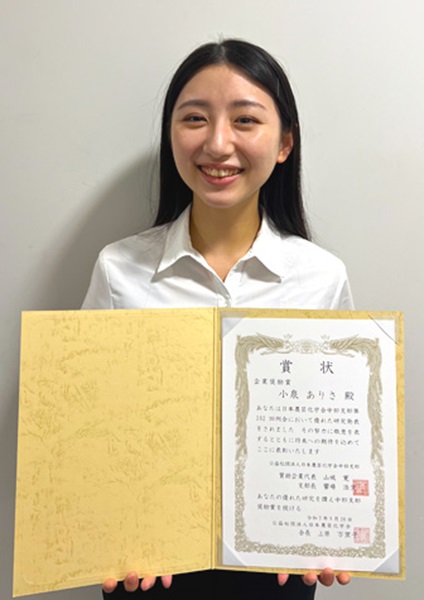 賞状
企業奨励賞
小泉 ありさ 殿
あなたは日本農芸化学会中部支部第
192 回例会において優れた研究発表
をされました その努力に敬意を表
するとともに将来への期待を込めて
ここに表彰いたします
公益社団法人日本農芸化学会中部支部
賛助企業代表 山成 寛
支部長
あなたの優れた研究を讃え中部支部
奨励賞を授ける
公益社団法人日本農芸化学会
会長